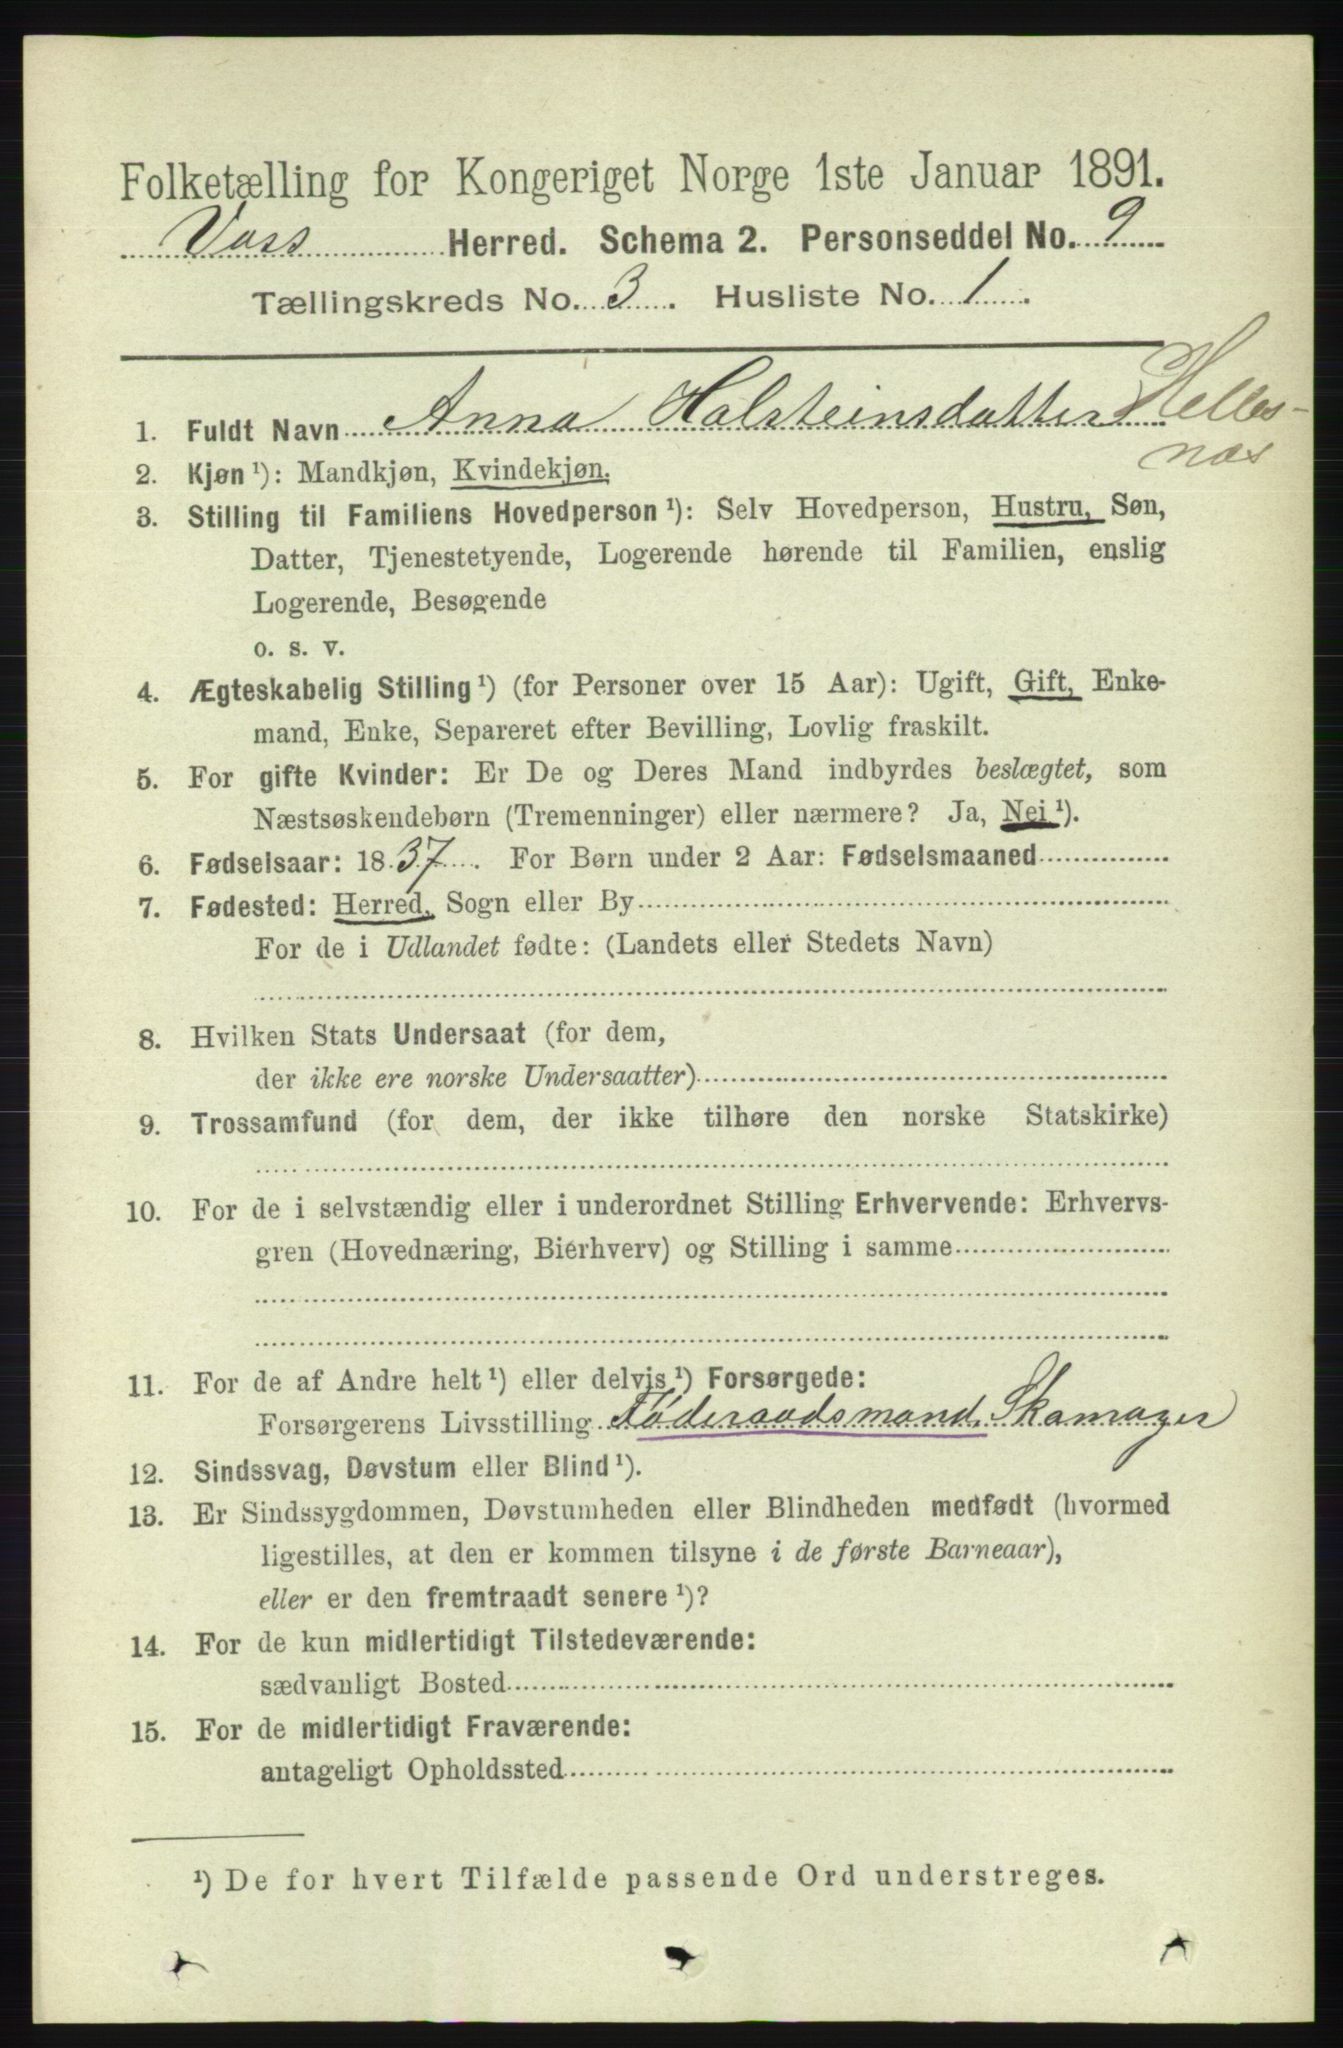 Folketælling for Kongeriget Norge 1ste Januar 1891.
Voss Herred. Schema 2. Personseddel No. 9
Tællingskreds No. 3. Husliste No. 1.
1. Fuldt Navn Anna Halsteinsdatter Helles-
næs
2. Kjøn ¹): Mandkjøn, Kvindekjøn.
3. Stilling til Familiens Hovedperson ¹): Selv Hovedperson, Hustru, Søn,
Datter, Tjenestetyende, Logerende hørende til Familien, enslig
Logerende, Besøgende
o. s. v.
4. Ægteskabelig Stilling ¹) (for Personer over 15 Aar): Ugift, Gift, Enke-
mand, Enke, Separeret efter Bevilling, Lovlig fraskilt.
5. For gifte Kvinder: Er De og Deres Mand indbyrdes beslægtet, som
Næstsøskendebørn (Tremenninger) eller nærmere? Ja, Nei ¹).
6. Fødselsaar: 1837. For Børn under 2 Aar: Fødselsmaaned
7. Fødested: Herred, Sogn eller By
For de i Udlandet fødte: (Landets eller Stedets Navn)
8. Hvilken Stats Undersaat (for dem,
der ikke ere norske Undersaatter)
9. Trossamfund (for dem, der ikke tilhøre den norske Statskirke)
10. For de i selvstændig eller i underordnet Stilling Erhvervende: Erhvervs-
gren (Hovednæring, Bierhverv) og Stilling i samme
11. For de af Andre helt ¹) eller delvis ¹) Forsørgede:
Forsørgerens Livsstilling Føderaadsmand, Skomager
12. Sindssvag, Døvstum eller Blind ¹).
13. Er Sindssygdommen, Døvstumheden eller Blindheden medfødt (hvormed
ligestilles, at den er kommen tilsyne i de første Barneaar),
eller er den fremtraadt senere ¹)?
14. For de kun midlertidigt Tilstedeværende:
sædvanligt Bosted
15. For de midlertidigt Fraværende:
antageligt Opholdssted
¹) De for hvert Tilfælde passende Ord understreges.